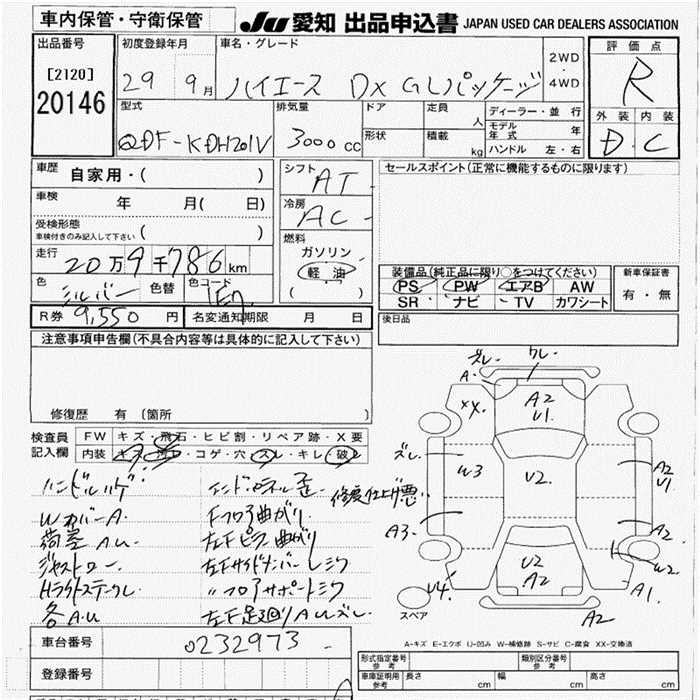 車内保管・守衛保管
JU 愛知 出品申込書 JAPAN USED CAR DEALERS ASSOCIATION
出品番号
[2120]
20146
初度登録年月
29 9月
車名・グレード
ハイエース DX GLパッケージ
2WD
・
4WD
評価点
R
外装 内装
D・C
型式
QDF-KDH201V
排気量
3000cc
ドア
形状
定員
人
積載
kg
ディーラー・並行
モデル年式 年
ハンドル 左・右
車歴
自家用・( )
車検
年 月( 日)
受検形態
車検付きのみ記入して下さい
( )
走行
20万9千786km
色
シルバー
色替
色コード
1E7
シフト
AT
冷房
AC
燃料
ガソリン
軽油
( )
セールスポイント(正常に機能するものに限ります)
装備品(純正品に限り○をつけてください)
PS PW エアB AW
SR ナビ TV カワシート
新車保証書
有・無
R券 9,550円
名変通知期限 月 日
後日品
注意事項申告欄(不具合内容等は具体的に記入して下さい)
修復歴 有 (箇所 )
検査員
記入欄
FW キズ・飛石・ヒビ割・リペア跡・X要
内装 キズ・汚れ・コゲ・穴・スレ・キレ・破れ
ハンドルハゲ
WカバーA
荷室AU
ジャストロー
Hライトステークレ
各AU
インドパネル歪
Fフロア曲がり
左Fピラ曲がり
左Fサイドメンバーしミク
〃フロアサポートミク
左F足廻りAUズレ
修復仕上げ悪い
ズレ
ワレ
A
XX
A2
U1
ズレ
W3
U2
A2
U1
A3
A2
W2
U4
U2
A2
A1
A2
スペア
A-キズ E-エクボ U-凹み W-補修跡 S-サビ C-腐食 XX-交換済
車台番号
0232973
登録番号
形式指定番号
参考
類別区分番号
参考
車庫証明用
参考
長さ cm
幅 cm
高さ cm